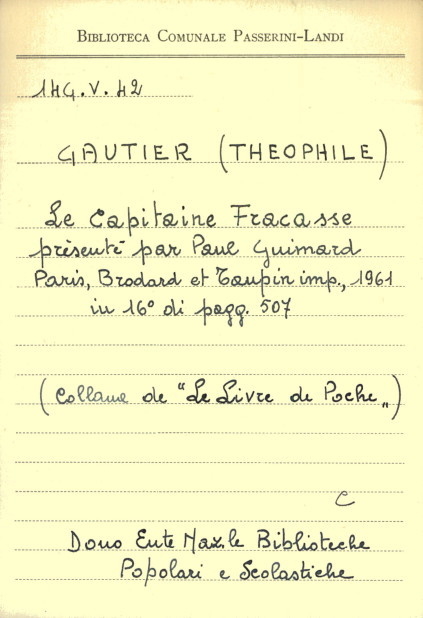 BIBLIOTECA COMUNALE PASSERINI-LANDI
14G.V.42
GAUTIER (THEOPHILE)
Le Capitaine Fracasse
présenté par Paul Guimard
Paris, Brodard et Taupin imp., 1961
in 16° di pagg. 507
(Collana de "Le Livre de Poche„)
C
Dono Ente Naz.le Biblioteche
Popolari e Scolastiche